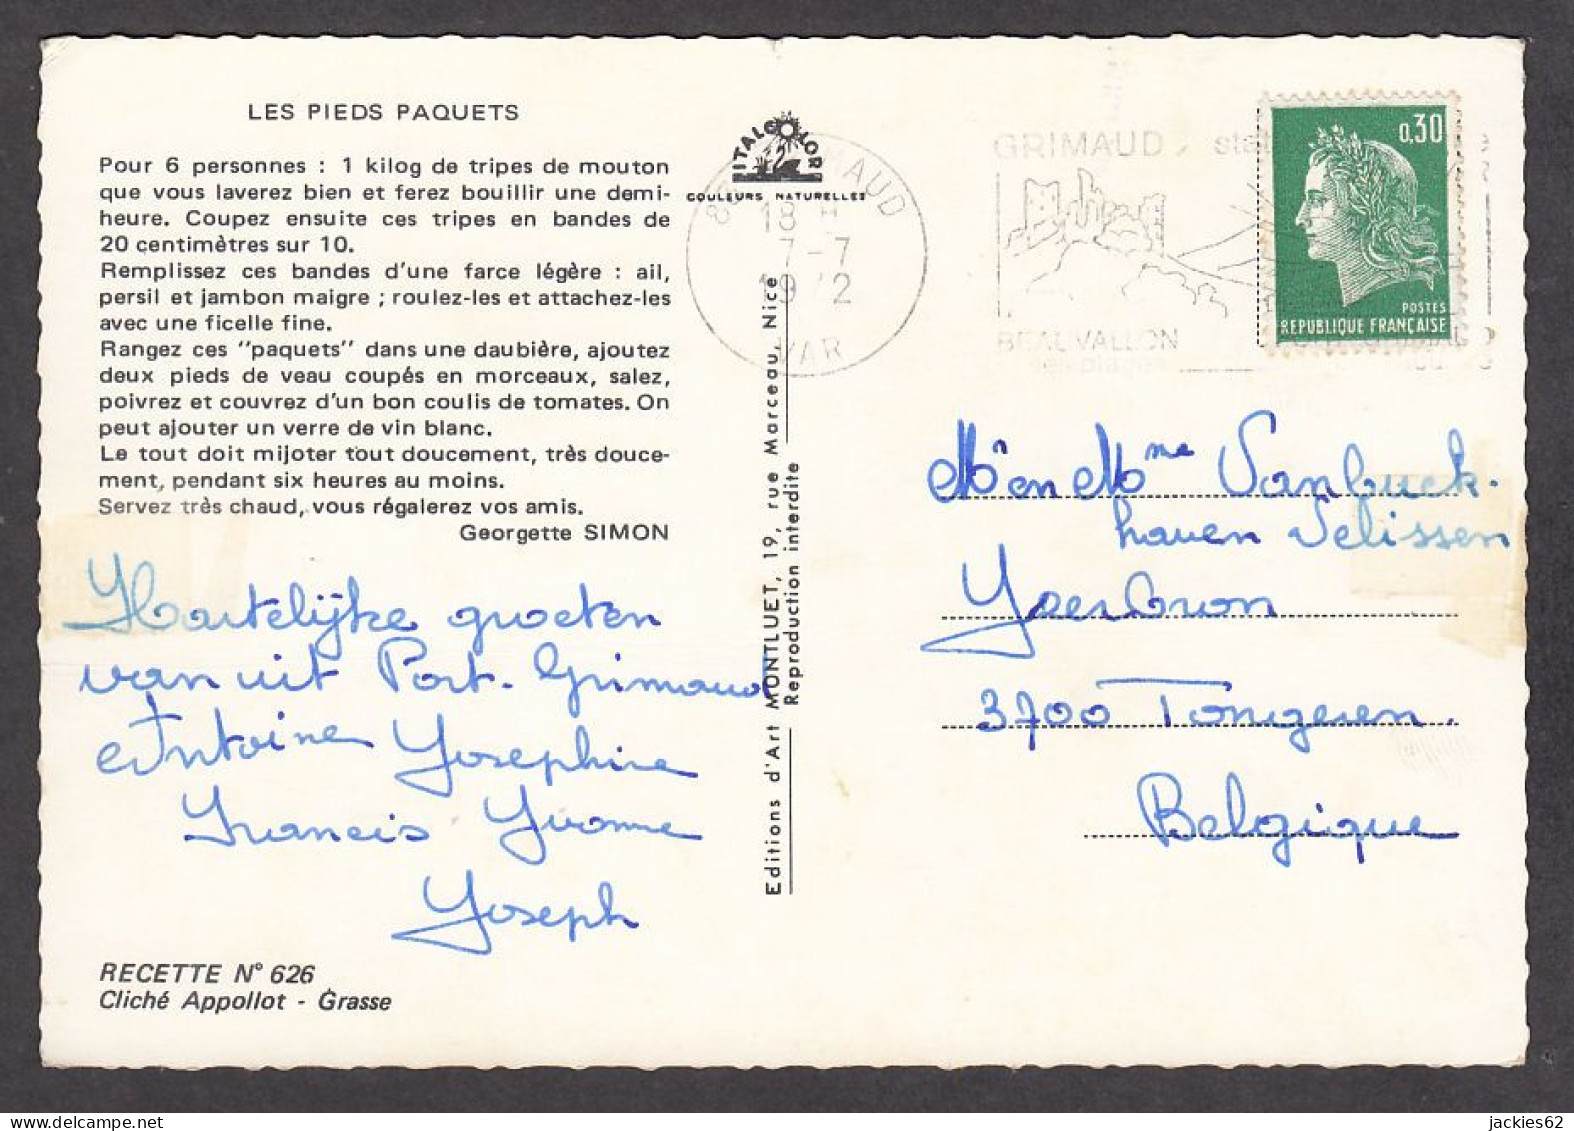 LES PIEDS PAQUETS
Pour 6 personnes : 1 kilog de tripes de mouton
que vous laverez bien et ferez bouillir une demi-
heure. Coupez ensuite ces tripes en bandes de
20 centimètres sur 10.
Remplissez ces bandes d'une farce légère : ail,
persil et jambon maigre ; roulez-les et attachez-les
avec une ficelle fine.
Rangez ces "paquets" dans une daubière, ajoutez
deux pieds de veau coupés en morceaux, salez,
poivrez et couvrez d'un bon coulis de tomates. On
peut ajouter un verre de vin blanc.
Le tout doit mijoter tout doucement, très douce-
ment, pendant six heures au moins.
Servez très chaud, vous régalerez vos amis.
Georgette SIMON
Hartelijke groeten
van uit Port-Grimaud
Antoine Josephine
Francis Yvonne
Joseph
RECETTE N° 626
Cliché Appollot - Grasse
ITALCOLOR
COULEURS NATURELLES
Editions d'Art MONTLUET, 19, rue Marceau, Nice
Reproduction interdite
18 H
7-7
1972
VAR
GRIMAUD
BEAUVALLON
0,30
POSTES
REPUBLIQUE FRANÇAISE
Mr en Mme Vanbuck-
haven Selissen
3700 Tongeren.
Belgique
jackies62